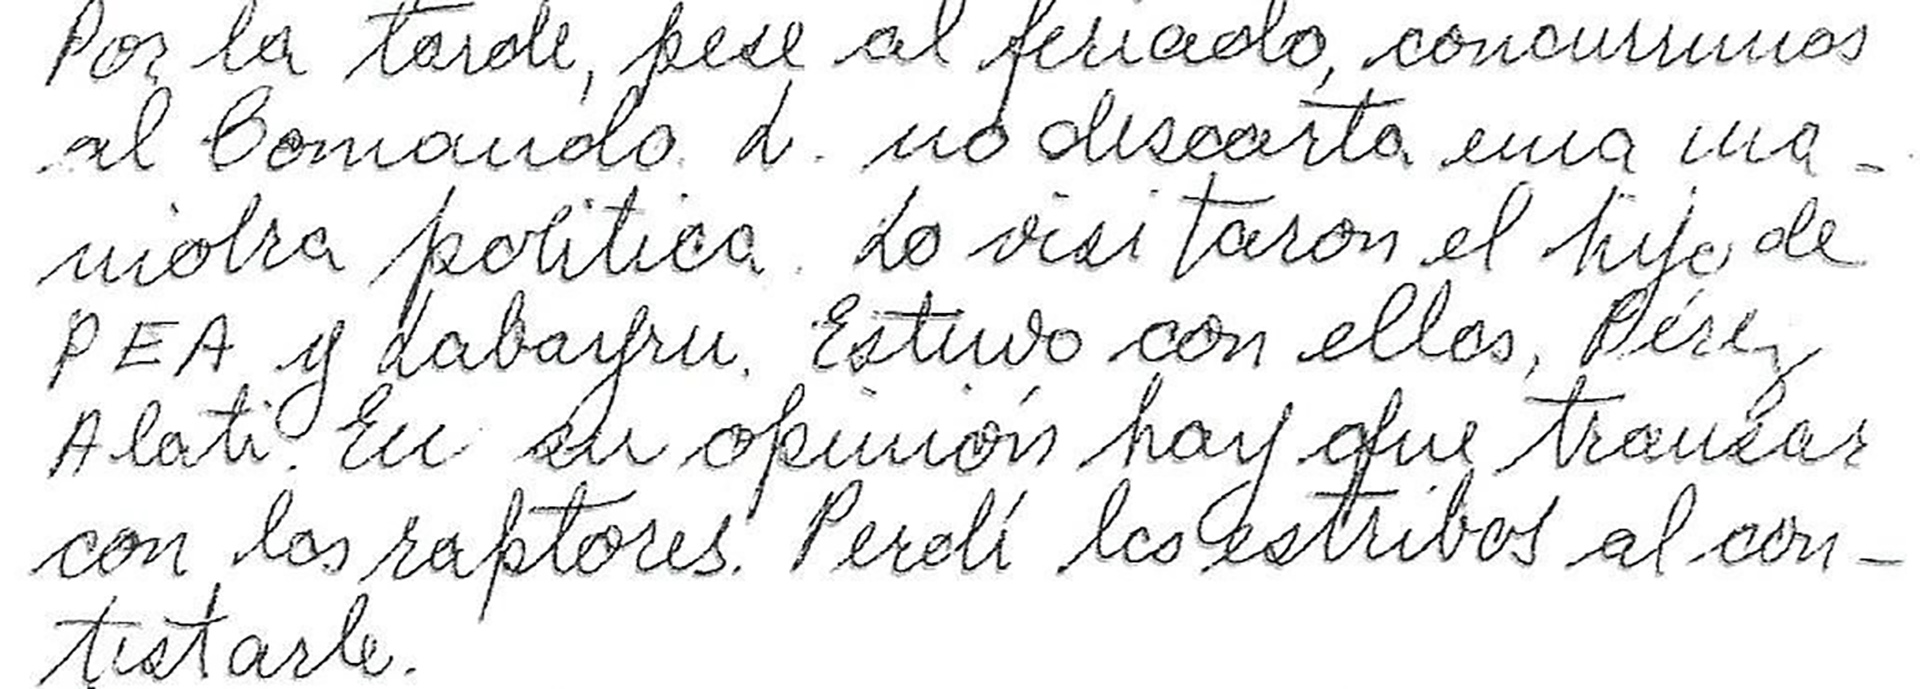 Por la tarde, pese al feriado, concurrimos
al Comando. L. no descarta una ma-
niobra política. Lo visitaron el hijo de
PEA y Labayru. Estuvo con ellos, Pérez
Alati. En su opinión hay que transar
con los raptores. Perdí los estribos al con-
testarle.